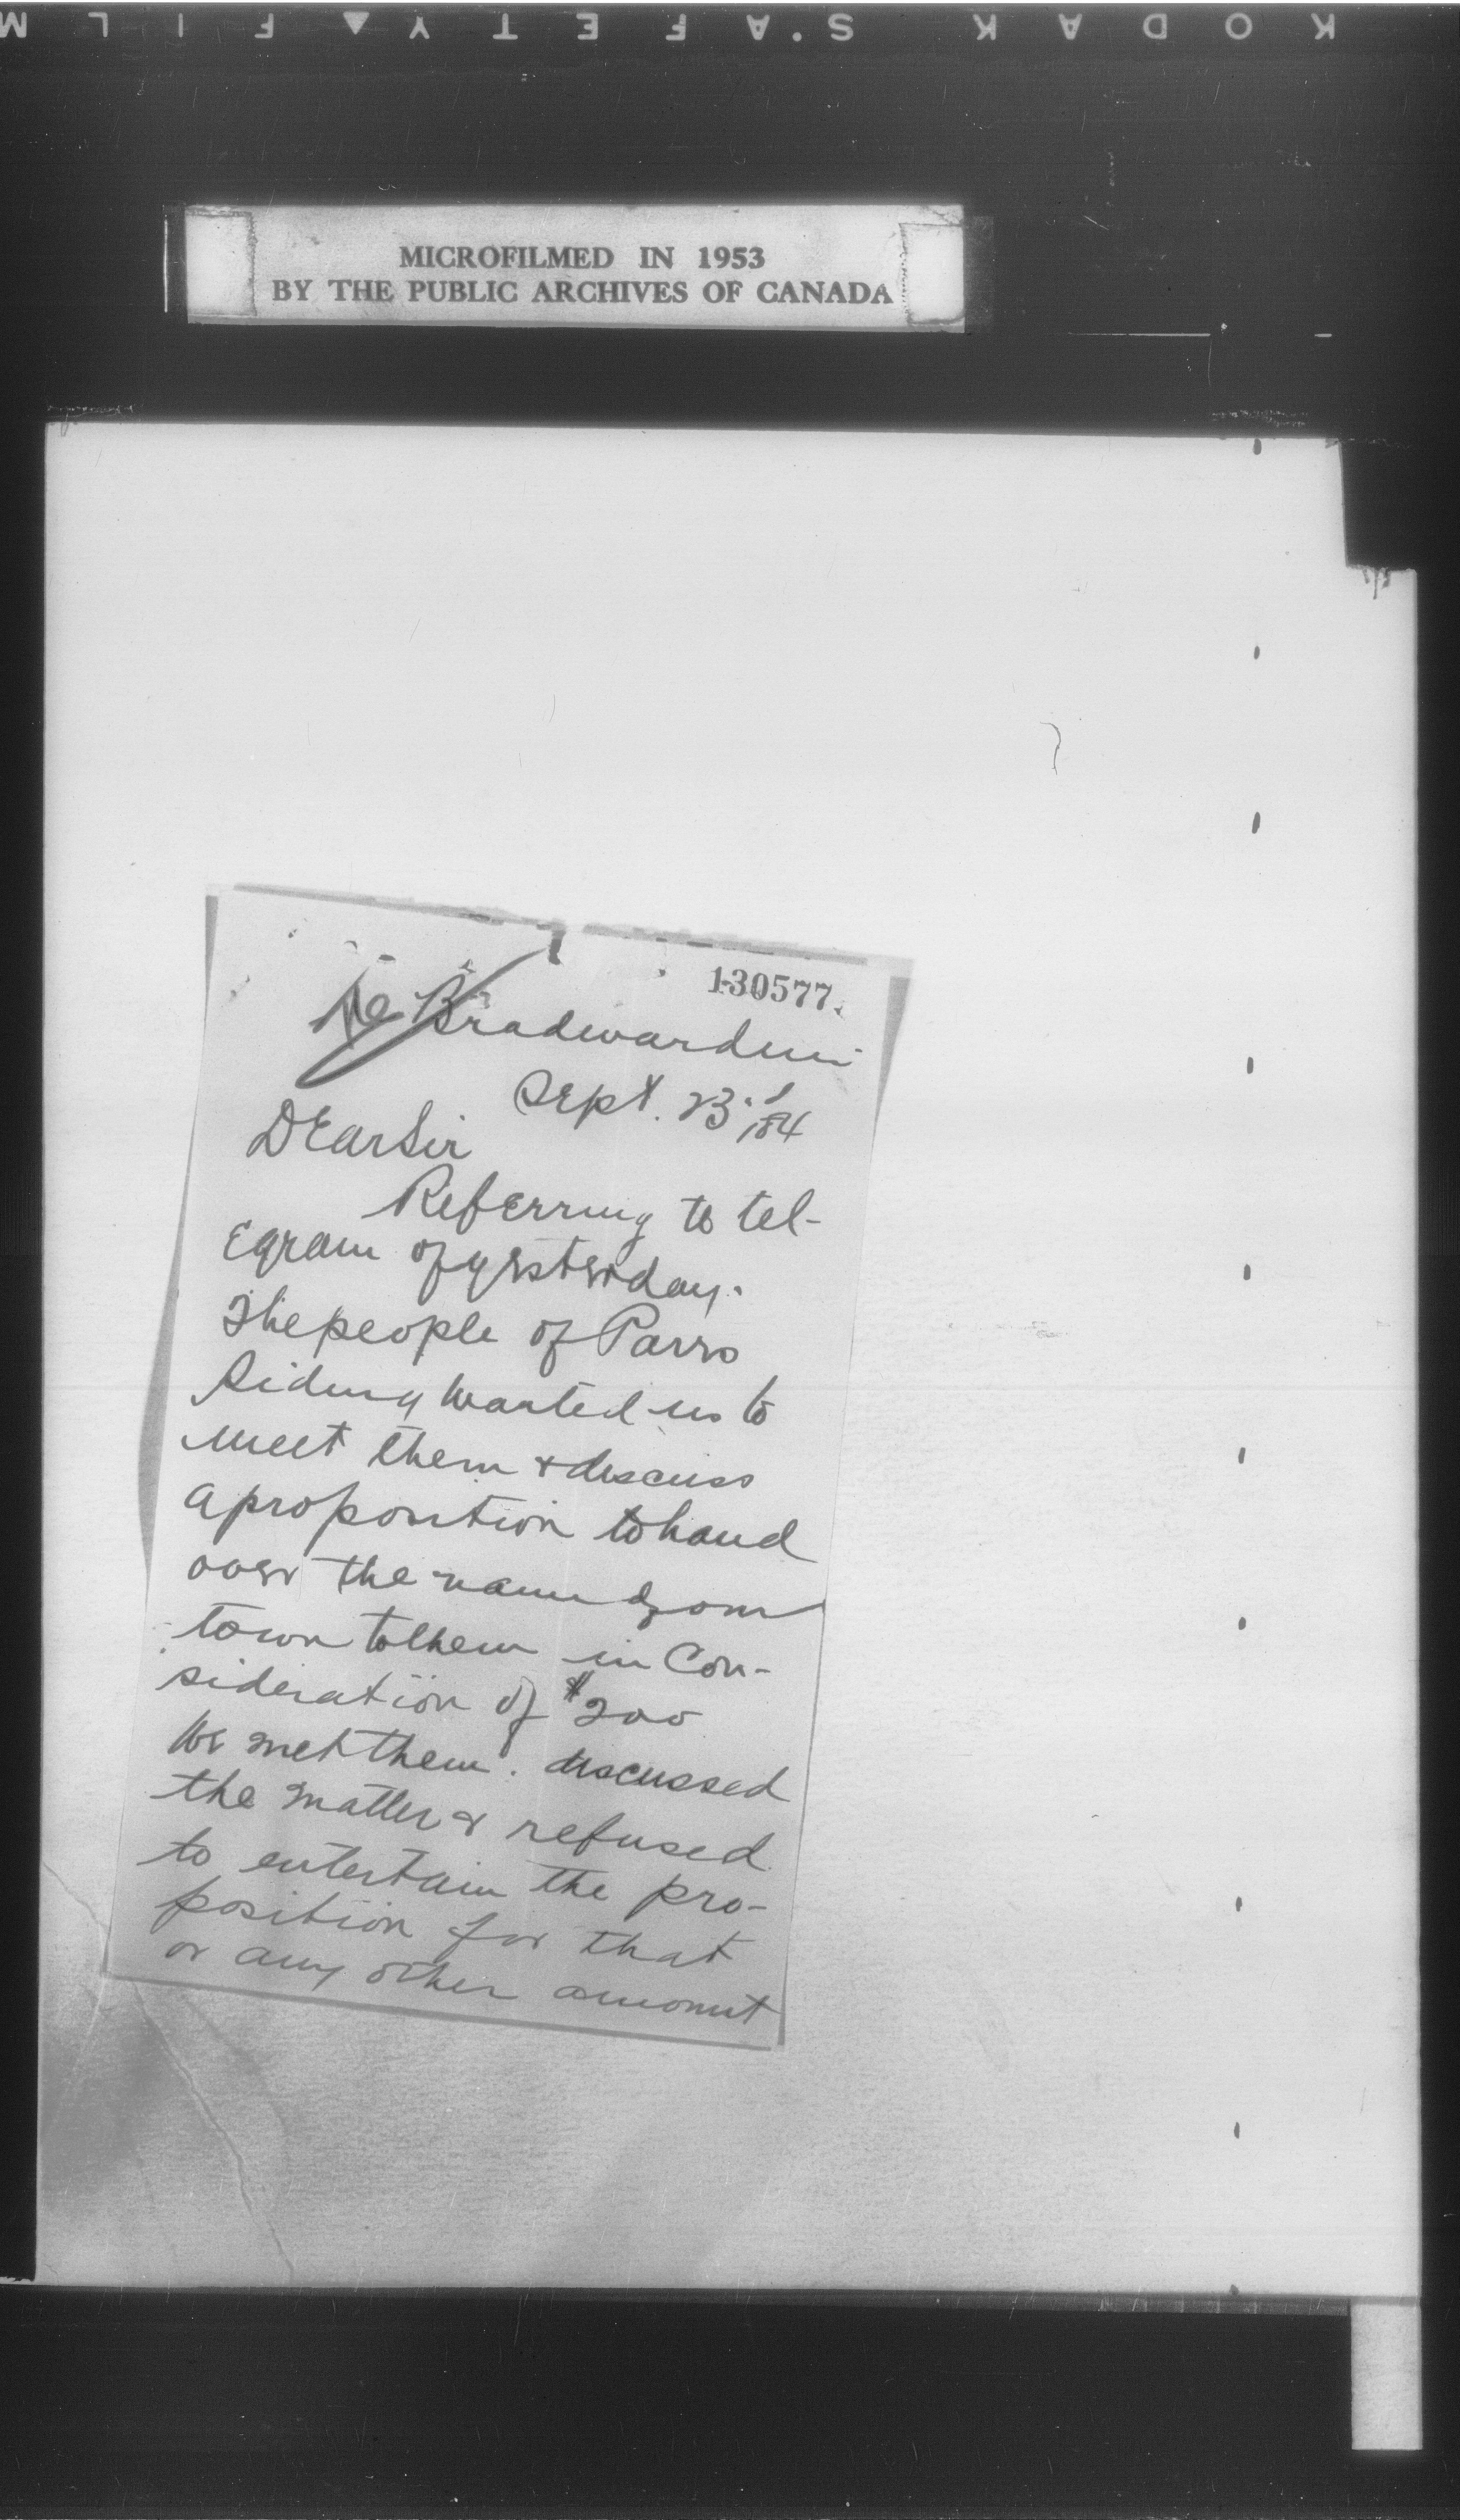 KODAK SAFETY FILM
MICROFILMED IN 1953
BY THE PUBLIC ARCHIVES OF CANADA
130577.
Re Bradwardine
Sept. 23rd/84
DEar Sir
Referring to tel-
Egram of yesterday.
The people of Parrs
Siding wanted us to
meet them & discuss
a proposition to hand
over the name of our
town to them in Con-
sideration of $200
We met them. discussed
the matter & refused
to entertain the pro-
position for that
or any other amount